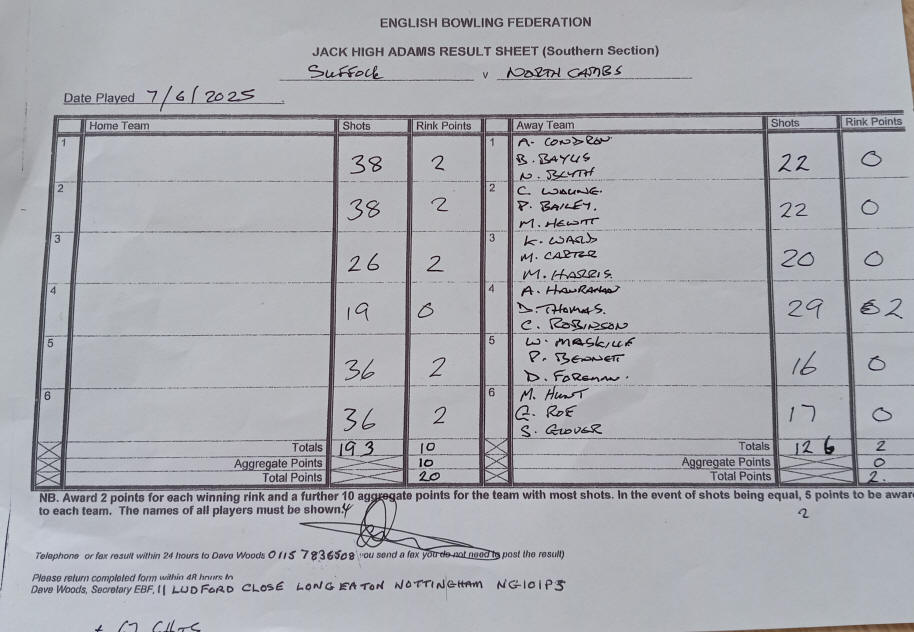 ENGLISH BOWLING FEDERATION
JACK HIGH ADAMS RESULT SHEET (Southern Section)
SUFFOLK v NORTH CAMBS
Date Played 7/6/2025
Home Team Shots Rink Points Away Team Shots Rink Points
1 38 2 1 A. CONDRON 22 0
B. BAYLIS
N. BLYTH
2 38 2 2 C. 22 0
P. BAILEY.
M. HEWITT
3 26 2 3 K. WARD 20 0
M. CARTER
M. HARRIS.
4 19 0 4 A. HANRAHAN 29 2
D. THOMAS.
C. ROBINSON
5 36 2 5 W. MASKILL 16 0
P. BENNETT
D. FOREMAN.
6 36 2 6 M. HUNT 17 0
G. ROE
S. GLOVER
Totals 193 10 Totals 126 2
Aggregate Points 10 Aggregate Points 0
Total Points 20 Total Points 2.
NB. Award 2 points for each winning rink and a further 10 aggregate points for the team with most shots. In the event of shots being equal, 5 points to be awar
to each team. The names of all players must be shown.
2
Telephone or fax result within 24 hours to Dave Woods 0115 7836508 you send a fax you do not need to post the result)
Please return completed form within 48 hours to
Dave Woods, Secretary EBF, 11 LUDFORD CLOSE LONG EATON NOTTINGHAM NG101PJ